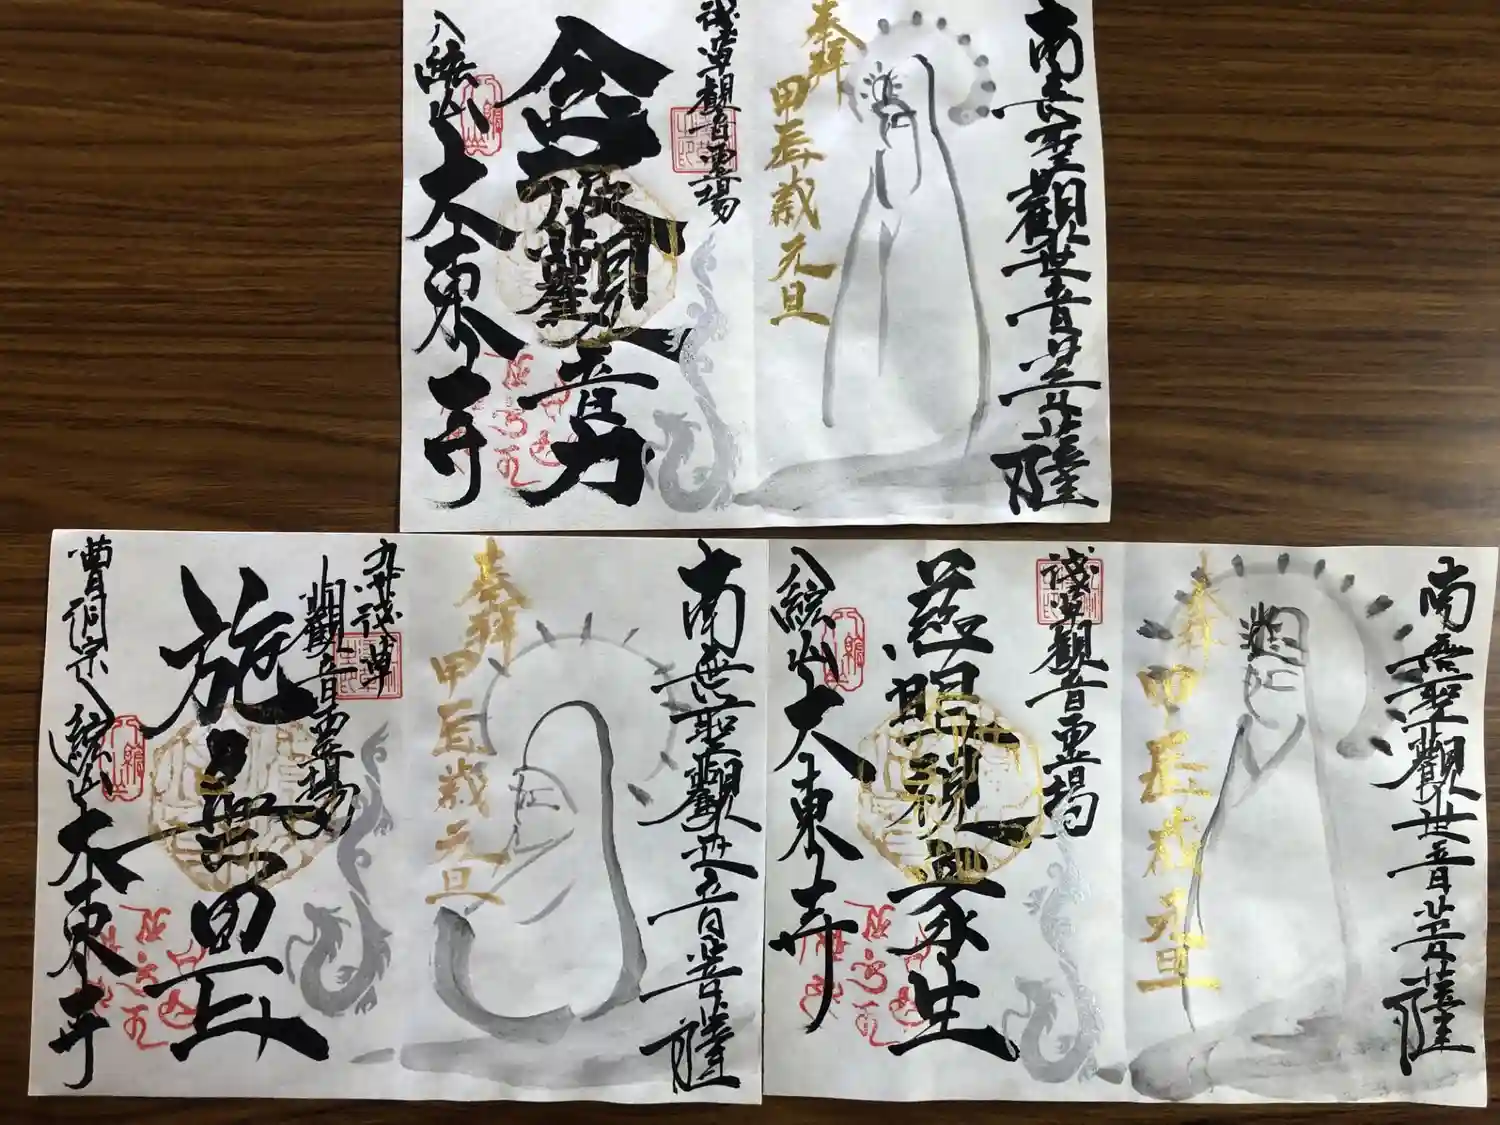 南無聖観世音菩薩
奉拝
甲辰歳元旦
浅草観音霊場
念彼観音力
八総山大東寺
南無聖観世音菩薩
奉拝
甲辰歳元旦
九番浅草
観音霊場
施無畏
曹洞宗八総山大東寺
南無聖観世音菩薩
奉拝
甲辰歳元旦
浅草観音霊場
慈眼視衆生
八総山大東寺